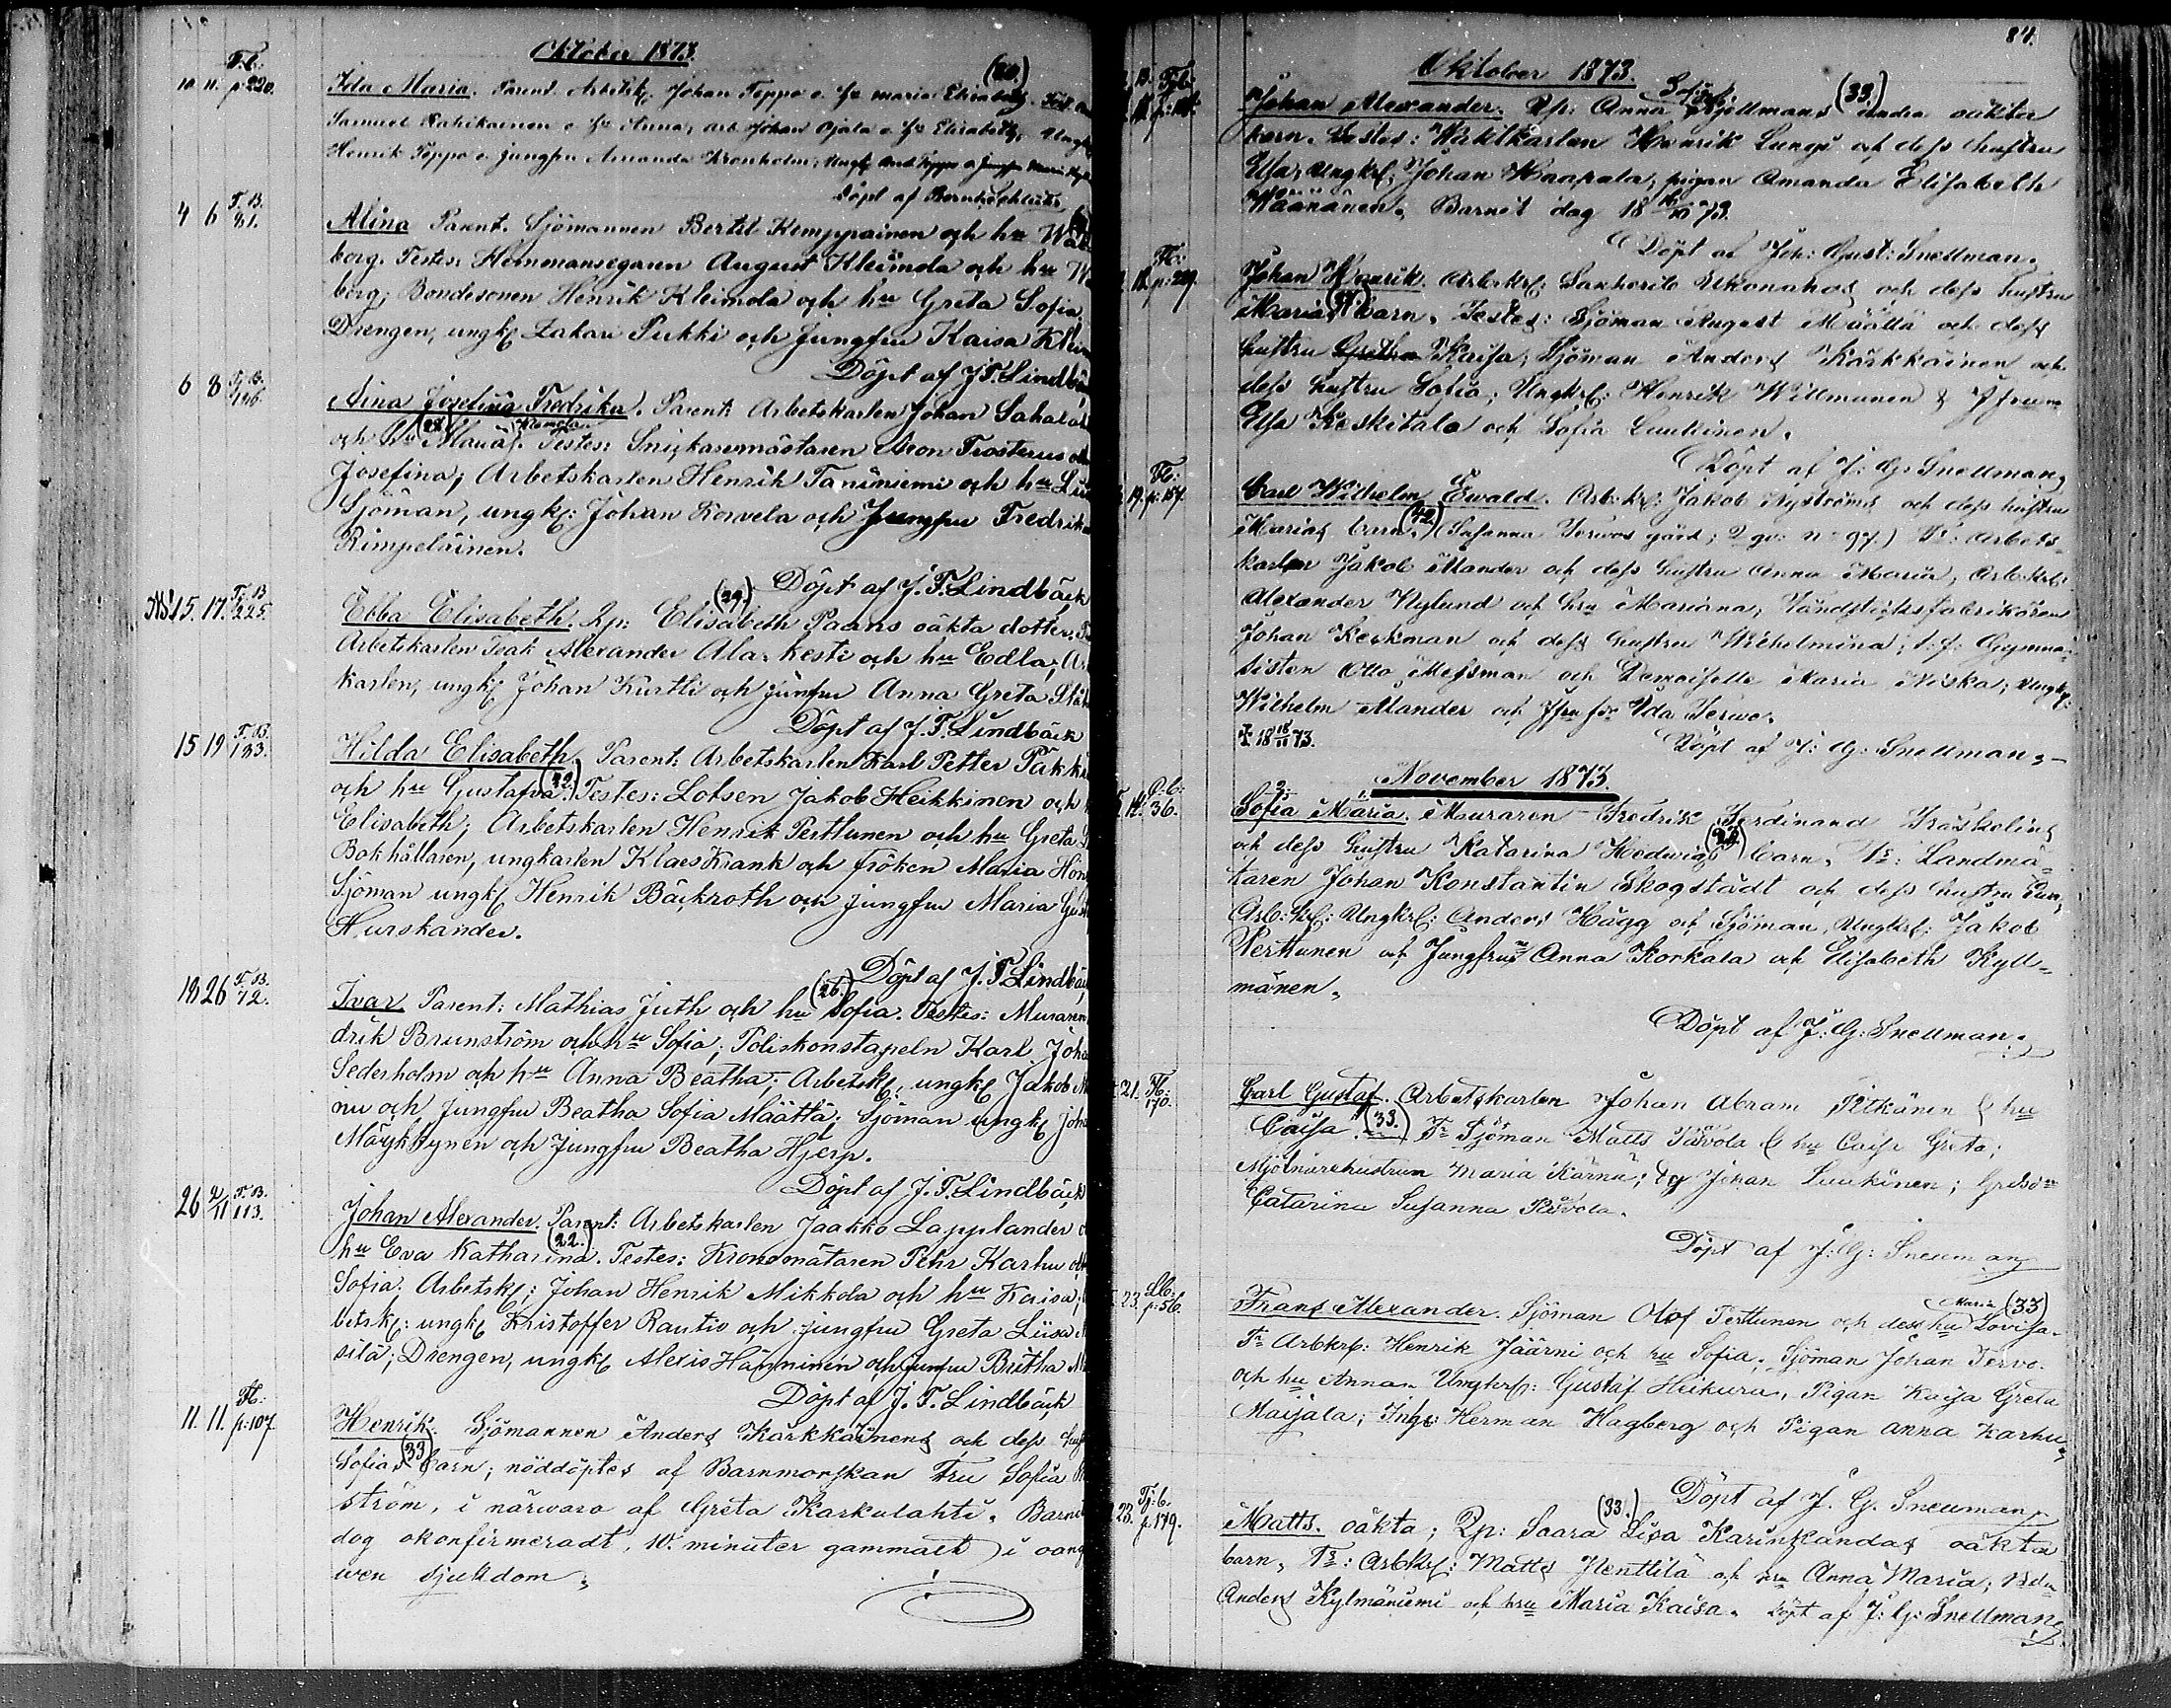 Oktober 1873.
T.b.
10. 11. p. 220. Ida Maria. Parent. Arbetsk. Johan Teppo o. h:u Maria Elisabeth.
Samuel Rahikainen o. h:u Anna, arb. Johan Ojala o. h:u Elisabeth, Ungk
Henrik Teppo o. jungfru Amanda Kronholm, Ungk.
Döpt af
4 6 T.B. 81. Alina Parent. Sjömannen Bertil Kemppainen och h:u Wal
borg. Testes: Hemmansegaren August Kleimola och h:u
borg; Bondesonen Henrik Kleimola och h:u Greta Sofia,
Drengen, ungk: Zakari Pukki och Jungfru Kaisa Klei
Döpt af J. F. Lindbäck
6 8 T.B. 126. Aina Josefina Fredrika. Parent: Arbetskarlen Johan Sahala
och h:u Maria (28). Testes: Snickaremästaren Aron Frosterus och
Josefina; Arbetskarlen Henrik Taniniemi och h:u
Sjöman, ungk: Johan Korvela och Jungfru Fredrika
Rimpeläinen.
Döpt af J. F. Lindbäck
15. 17. T.B. 225. Ebba Elisabeth. Qp: Elisabeth Paans oäkta dotter. (29.)
Arbetskarlen Isak Alexander Ala-kesti och h:u Edla; Ar
karlen, ungk: Johan Kurtti och jungfru Anna Greta
Döpt af J. F. Lindbäck
15 19 T.B. 133. Hilda Elisabeth. Parent: Arbetskarlen Karl Petter Pakk
och h:u Gustafva (22.) Testes: Lotsen Jakob Heikkinen och
Elisabeth; Arbetskarlen Henrik Perttunen och h:u Greta
Bokhållaren, ungkarlen Klaes Krank och fröken Maria
Sjöman ungk: Henrik Bäckroth och jungfru Maria
Hurskander.
Döpt af J. F. Lindbäck
18 26 T.B. 72. Ivar Parent: Mathias Juth och h:u Sofia. (26.) Testes: Muraren
drik Brunström och h:u Sofia; Poliskonstapeln Karl Joha
Sederholm och h:u Anna Beatha; Arbetsk:, ungk: Jakob
nu och Jungfru Beatha Sofia Määttä; Sjöman ungk: Joha
Mäykkynen och Jungfru Beatha Hjerp.
Döpt af J. F. Lindbäck
26 2/11 T.B. 113. Johan Alexander. Parent: Arbetskarlen Jaakko Lapplander
h:u Eva Katharina. (22.) Testes: Kronomätaren Pehr Karhu och
Sofia; Arbetsk: Johan Henrik Mikkola och h:u Kaisa;
betsk: ungk: Kristoffer Rautio och jungfru Greta Liisa
sila; Drengen, ungk: Alexis Hänninen och jungfru Britha
Döpt af J. F. Lindbäck
11. 11. p: 107 Henrik. Sjömannen Anders Kärkkäinens och dess
Sofias (33) barn; nöddöptes af Barnmorskan Fru Sofia
ström, i närwaro af Greta Karkulahti. Barnet
dog okonfirmeradt, 10. minuter gammalt i
wen sjukdom.
84.
Oktober 1873.
Johan Alexander. Qp: Anna Sofia Kjellmans (33.) andra oäkta
barn. Testes: Waktkarlen Henrik Lungi och dess hustru
Ulla, Ungkrl: Johan Haapala, pigan Amanda Elisabeth
Väänänen. Barnet dog 18 /10 73.
Döpt af Joh: Gust: Snellman.
18. p: 229. Johan Henrik. Arbkrl: Lauherita Ukonahos och dess hustru
Marias barn. Testes: Sjöman August Määttä och dess
hustru Kaisa, Sjöman Anders Kärkkäinen och
dess hustru Sofia; Ungkrl: Henrik Willmunen & Jfrun
Elsa Keskitalo och Sofia Luukinen.
Döpt af J: G: Snellman
19. p: 157. Carl Wilhelm Ewald. Arb:krl: Jakob Nyströms och dess hustru
Marias barn. (42) (Susanna Terwos gård; 2 qv: n:o 97) T:s: Arbets-
karlen Jakob Mander och dess hustru Anna Maria, Arb:krl:
Alexander Nylund och h:ru Mariana, Tändsticksfabrikören
Johan Keckman och dess hustru Wilhelmina; t.f. Gymna-
sisten Otto Messman och Demoiselle Maria Niska; Ungkrl:
Wilhelm Mander och Jfru Ida Terwo.
✝ 18 18/11 73. Döpt af J: G: Snellman.
November 1873.
12. 36. Sofia Maria. Muraren Fredrik Ferdinand Träskelins
och dess hustru Katarina Hedwigs (23.) barn. T:s: Landmä-
taren Johan Konstantin Skogstadt och dess hustru
Arb:krl: Ungkrl: Anders Hägg och Sjöman, Ungkrl: Jakob
Perttunen och Jungfrur Anna Korkala och Elisabeth Kyll-
mänen.
Döpt af J: G: Snellman.
21. 170. Carl Gustaf. Arbetskarlen Johan Abram Pitkänen & h:u
Caisa. (33.) T:s Sjöman Matts Pävola & h:u Caisa Greta;
Mjölnarehustrun Maria Kärnä; Johan Luukinen;
Catarina Susanna Pävola.
Döpt af J: G: Snellman
23. p: 56. Frans Alexander. Sjöman Olof Perttunen och dess h:u Maria Lovisa. (33)
T:s Arbkrl: Henrik Jäärni och h:u Sofia, Sjöman Johan Tervo
och h:u Anna. Ungkrl: Gustaf Heikura, Pigan Kaisa Greta
Maijala; Herman Hagberg och Pigan Anna Karhu.
Döpt af J. G. Snellman.
23. p. 179. Matts. oäkta; Qp: Saara Lisa Karinkandas (33.) oäkta
barn. T:s: Arbkrl: Matts Henttilä och h:ru Anna Maria;
Anders Kylmäniemi och h:ru Maria Kaisa. Döpt af J: G: Snellman